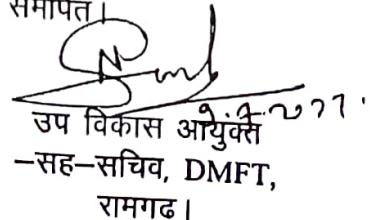 समाप्त।
उप विकास आयुक्त
–सह–सचिव, DMFT,
रामगढ।